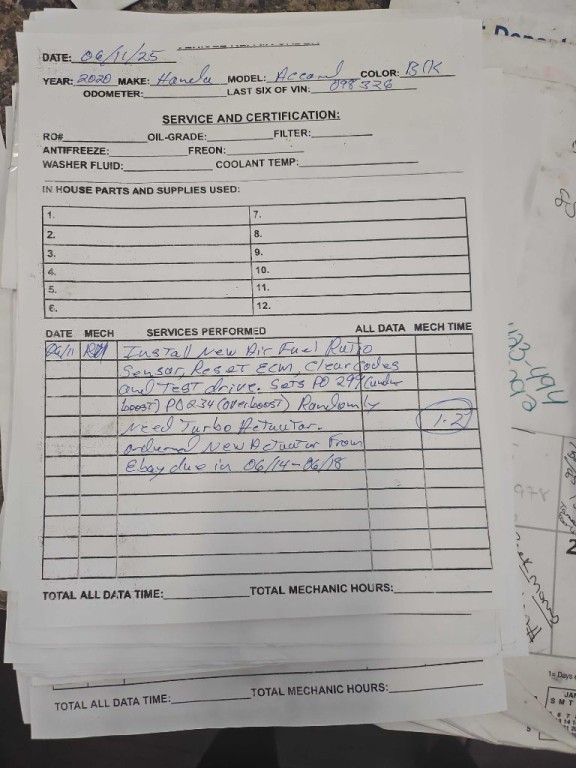 DATE: 06/11/25
YEAR: 2020 MAKE: Honda MODEL: Accord COLOR: BlK
ODOMETER: LAST SIX OF VIN: 098326
SERVICE AND CERTIFICATION:
RO# OIL-GRADE: FILTER:
ANTIFREEZE: FREON:
WASHER FLUID: COOLANT TEMP:
IN HOUSE PARTS AND SUPPLIES USED:
1. 7.
2. 8.
3. 9.
4. 10.
5. 11.
6. 12.
DATE MECH SERVICES PERFORMED ALL DATA MECH TIME
06/11 Install New Air Fuel Ratio
Sensor, Reset ECM, Clear Codes
and Test drive. Sets PO 299 (under
boost) PO234 (overboost) Randomly
Need Turbo Actuator. 1.2
ordered New Actuator From
Ebay due in 06/14-06/18
TOTAL ALL DATA TIME: TOTAL MECHANIC HOURS:
TOTAL ALL DATA TIME: TOTAL MECHANIC HOURS: